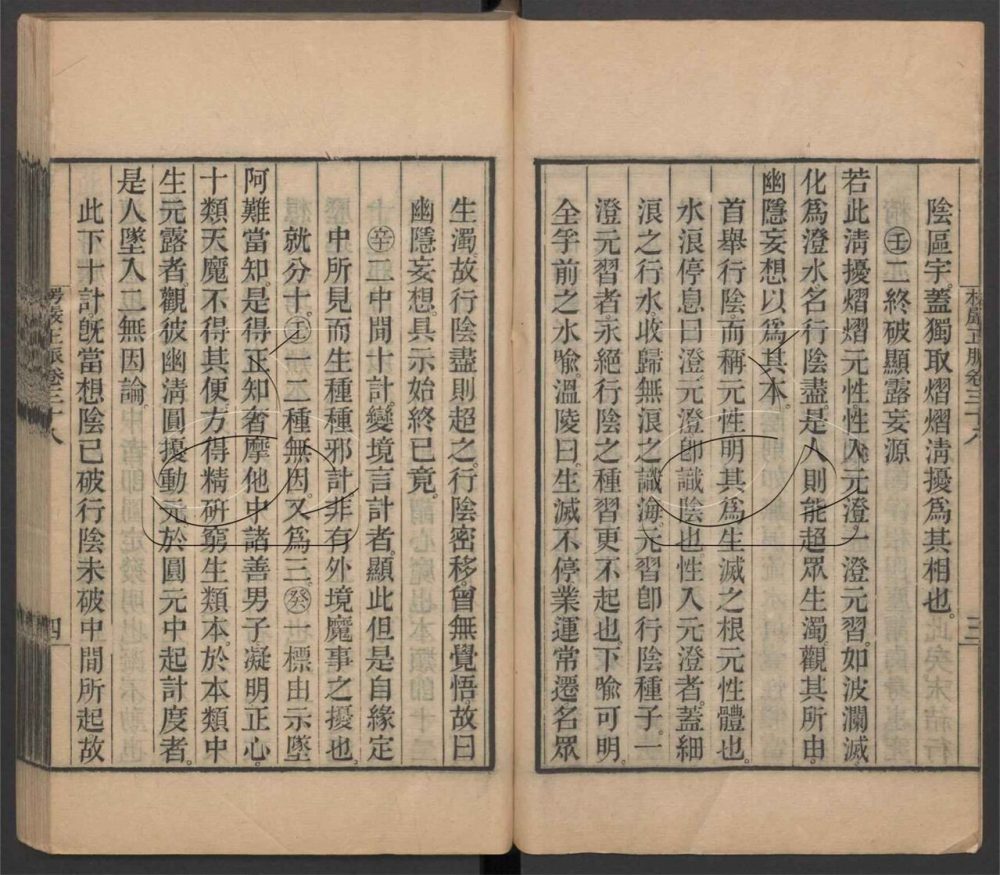 陰區宇。蓋獨取熠熠清擾爲其相也。
㊂壬二終破顯露妄源
若此清擾熠熠元性。性入元澄。一澄元習。如波瀾滅。
化爲澄水。名行陰盡。是人則能超眾生濁。觀其所由。
幽隱妄想以爲其本。
首舉行陰而稱元性。明其爲生滅之根元性體也。
水浪停息曰澄。元澄卽識陰也。性入元澄者。蓋細
浪之行水。收歸無浪之識海。元習卽行陰種子。一
澄元習者。永絕行陰之種習更不起也。下喩可明。
全乎前之水喩。溫陵曰。生滅不停業運常遷名眾
楞嚴正脈卷三十八
三
生濁。故行陰盡則超之。行陰密移。曾無覺悟故曰
幽隱妄想。具示始終已竟。
辛二中間十計。變境言計者。顯此但是自緣定
中所見而生種種邪計。非有外境魔事之擾也。
就分十。壬一二種無因。又爲三。癸一標由示墜
阿難當知。是得正知奢摩他中諸善男子。凝明正心。
十類天魔不得其便。方得精硏窮生類本。於本類中
生元露者。觀彼幽清圓擾動元。於圓元中起計度者。
是人墜入二無因論。
此下十計。旣當想陰已破行陰未破中間所起。故
楞嚴正脈卷三十八
四